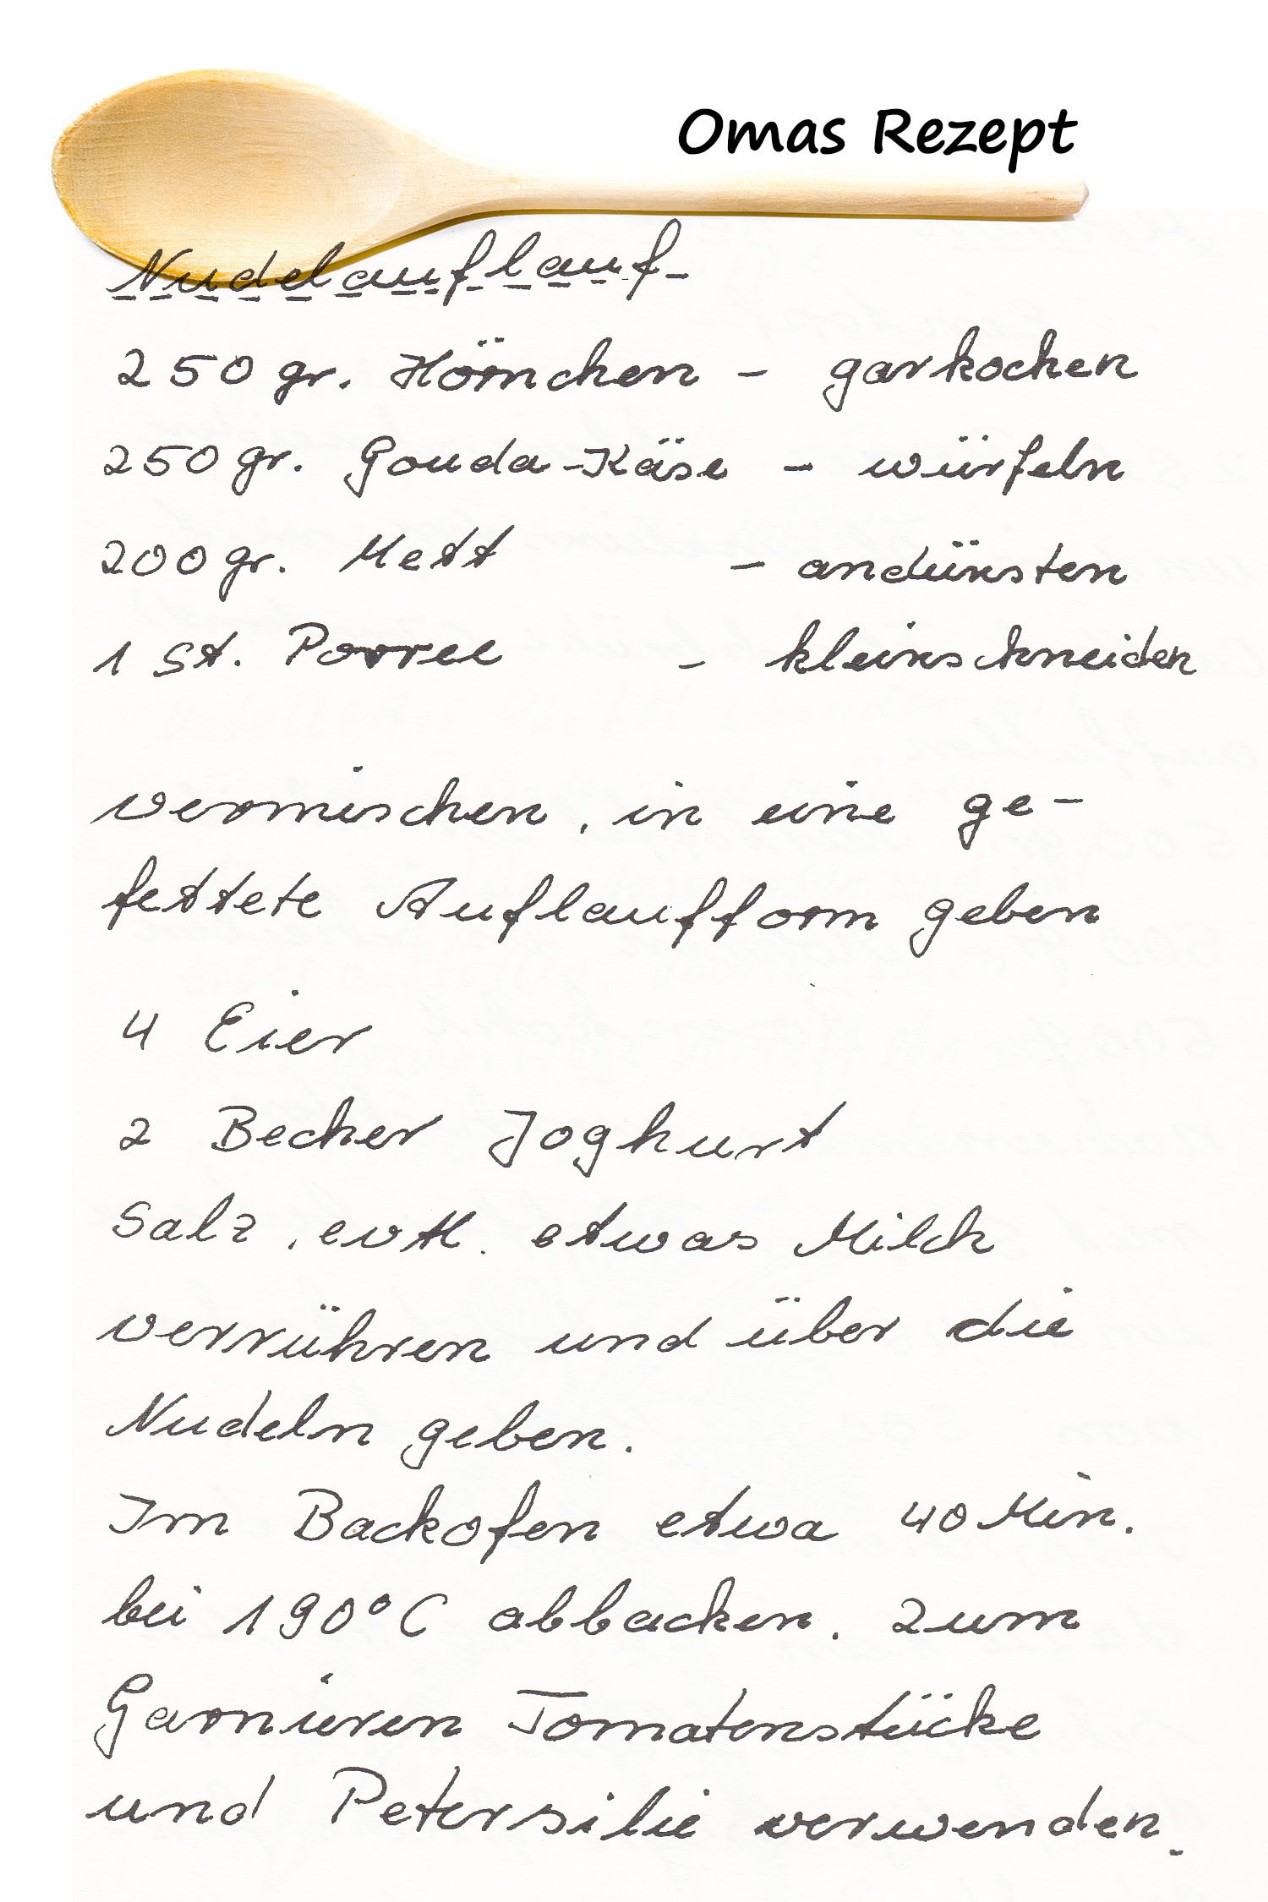 Omas Rezept
Nudelauflauf
250 gr. Hörnchen - garkochen
250 gr. Gouda-Käse - würfeln
200 gr. Mett - andünsten
1 St. Porree - kleinschneiden
vermischen, in eine ge-
fettete Auflaufform geben
4 Eier
2 Becher Joghurt
Salz, evtl. etwas Milch
verrühren und über die
Nudeln geben.
Im Backofen etwa 40 Min.
bei 190°C abbacken. Zum
Garnieren Tomatenstücke
und Petersilie verwenden.